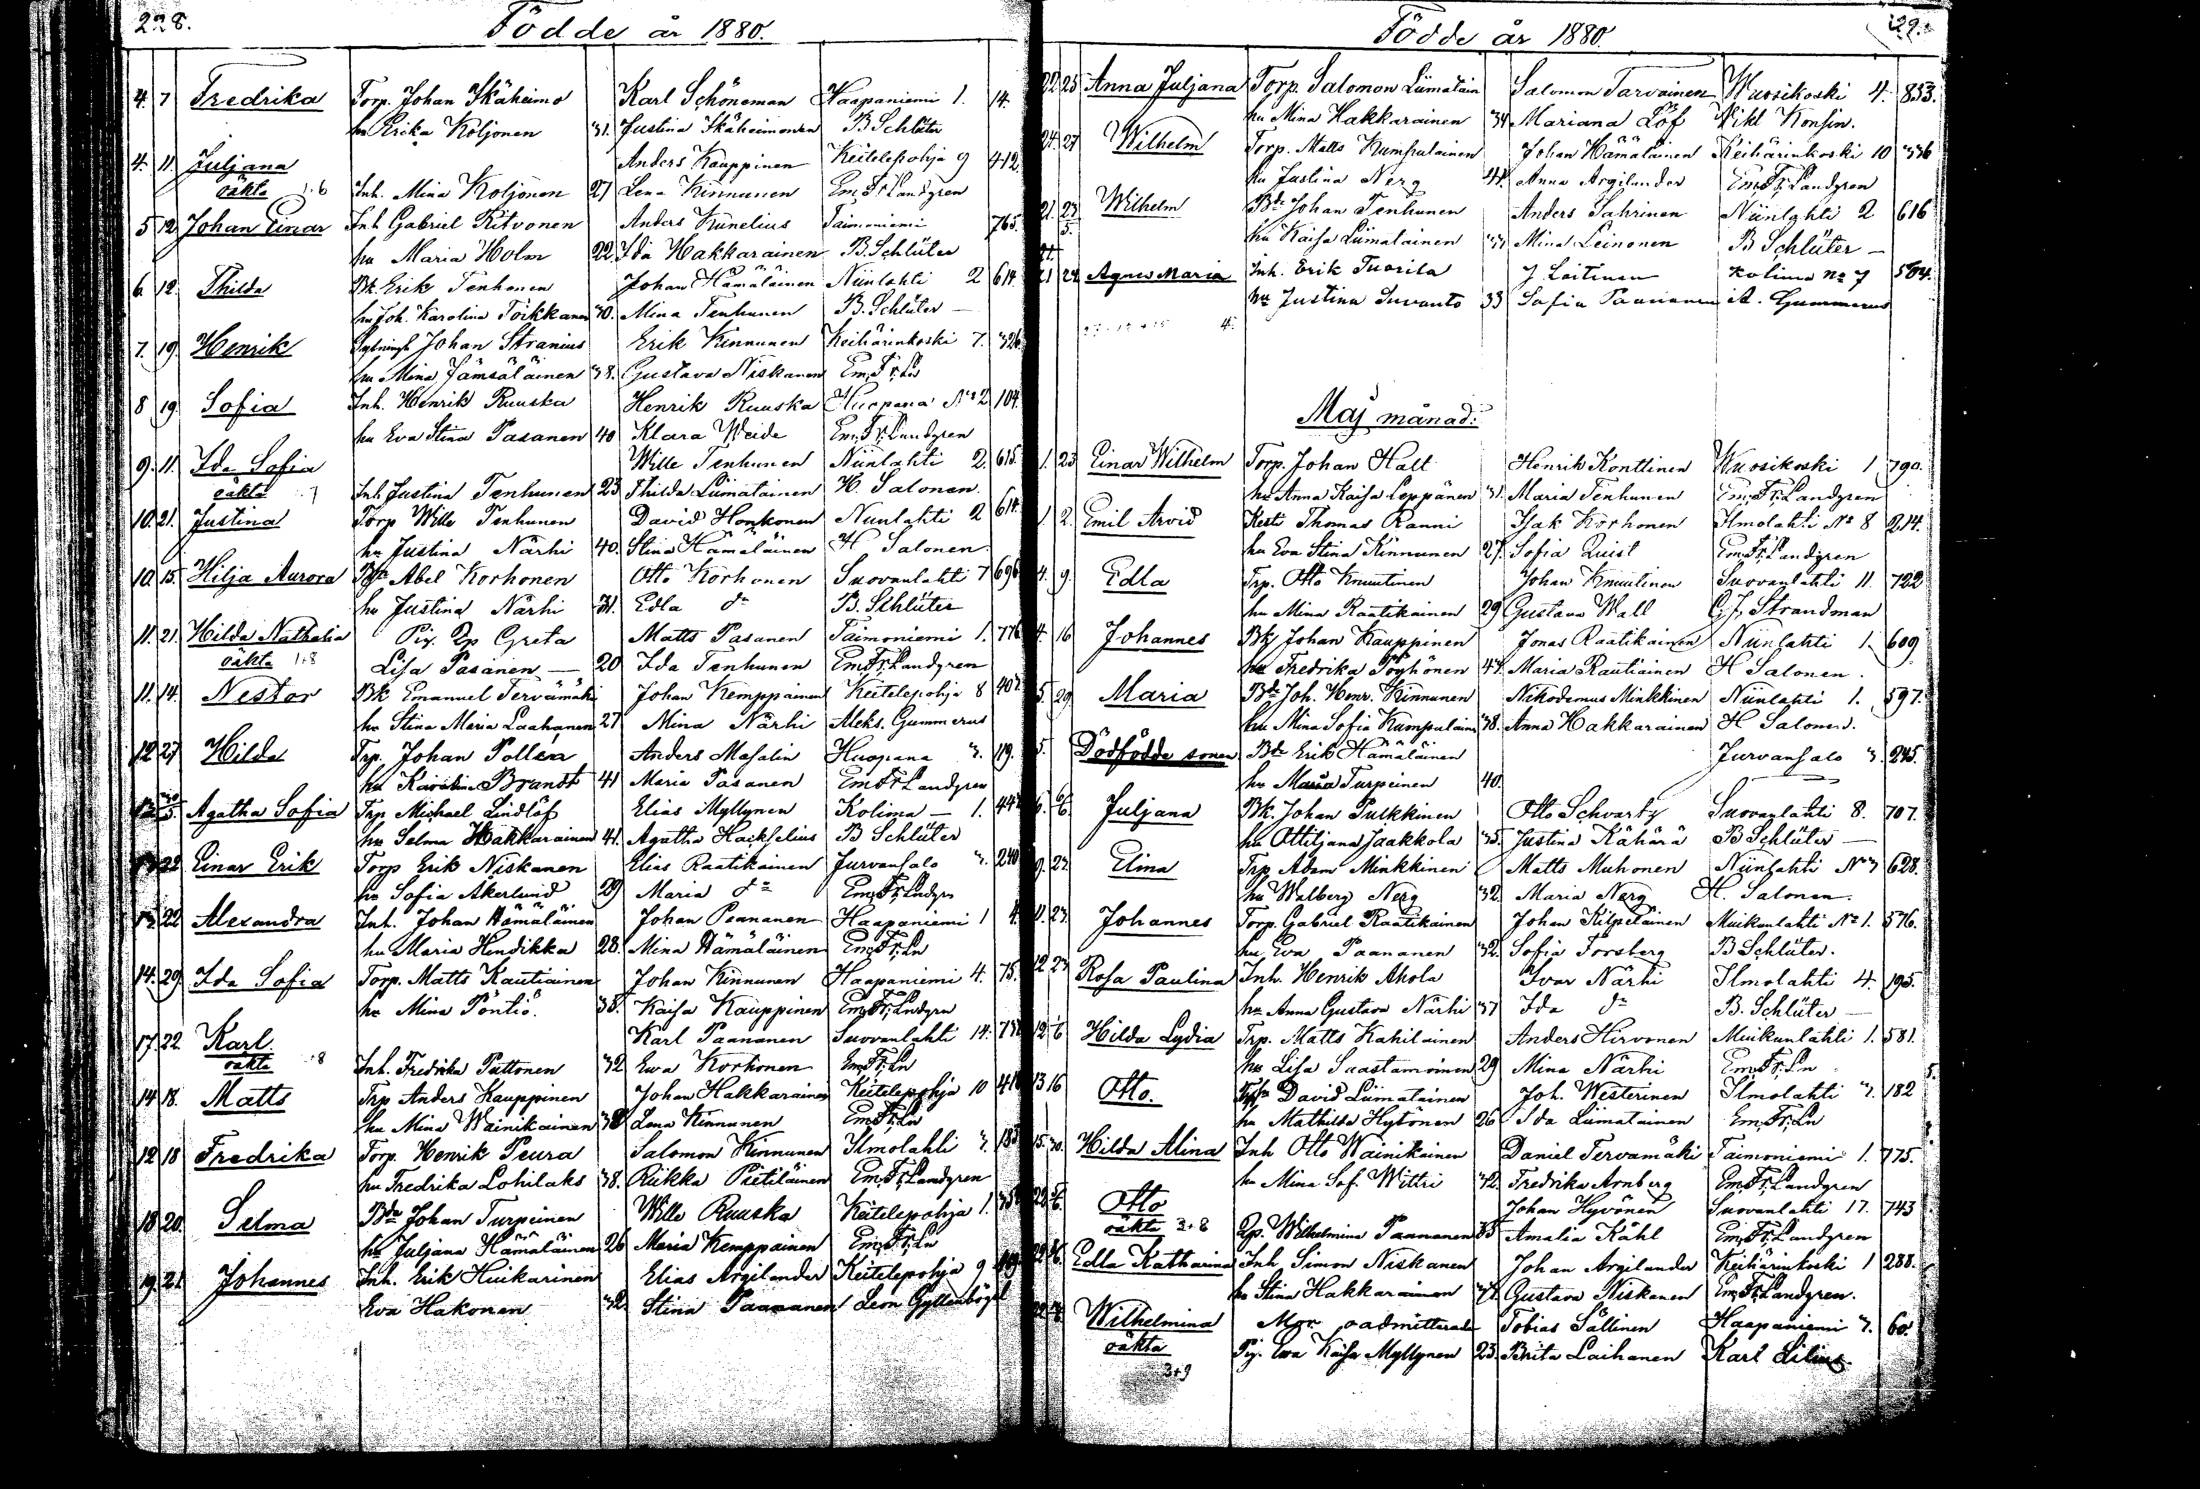 228.
Födde år 1880.
4. 7 Fredrika Torp. Johan Ikäheimo Karl Schöneman Haapaniemi 1. 14.
hu Erika Koljonen 31. Justina Ikäheimonen B Schlüter
4. 11. Juljana Anders Kauppinen Keitelepohja 9 412.
oäkta Inh. Mina Koljonen 27 Lena Kinnunen Em. Fr. Landgren
5 12 Johan Einar Inh Gabriel Ritvonen Anders Kunelius Taimoniemi 765.
hu Maria Holm 22. Ida Hakkarainen B. Schlüter
6. 12. Thilda Bk. Erik Tenhunen Johan Hämäläinen Niinlahti 2 614.
hu Joh. Karolina Toikkanen 30. Mina Tenhunen B. Schlüter —
7. 19. Henrik Johan Stranius Erik Kinnunen Keihärinkoski 7. 326
hu Mina Jämsäläinen 38. Gustava Niskanen Em. Fr. Ln
8 19. Sofia Inh. Henrik Ruuska Henrik Ruuska Huopana No 2 104.
hu Eva Stina Pasanen 40 Klara Weide Em. Fr. Landgren
9. 11. Ida Sofia Wille Tenhunen Niinlahti 2. 615.
oäkta Inh. Justina Tenhunen 23 Thilda Liimatainen H. Salonen.
10. 21. Justina Torp Wille Tenhunen David Honkonen Niinlahti 2 614.
hu Justina Närhi 40. Stina Hämäläinen H Salonen.
10. 15. Hilja Aurora Abel Korhonen Otto Korhonen Suovanlahti 7 696
hu Justina Närhi 31. Edla do B. Schlüter
11. 21. Hilda Nathalia Pig. Greta Matts Pasanen Taimoniemi 1. 776
oäkta 1+8 Lisa Pasanen — 20 Ida Tenhunen Em. Fr. Landgren
11. 14. Nestor Bk Emanuel Tervamäki Johan Kemppainen Keitelepohja 8 407
hu Stina Maria Laahanen 27 Mina Närhi Aleks. Gummerus
12 27 Hilda Trp. Johan Pollen Anders Masalin Huopana 3. 119.
hu Karolina Brandt 41 Maria Pasanen Em. Fr. Landgren
Agatha Sofia Trp Michael Lindlöf Elias Myllynen Kolima — 1. 447
hu Selma Hakkarainen 41. Agatha Hackselius B Schlüter
13 22 Einar Erik Torp Erik Niskanen Elias Raatikainen Jurvansalo 3. 240
hu Sofia Åkerlund 29 Maria do Em. Fr. Lndgrn
13. 22 Alexandra Inh. Johan Hämäläinen Johan Paananen Haapaniemi 1 4.
hu Maria Hendikka 28. Mina Hämäläinen Em. Fr. Ln
14. 29. Ida Sofia Torp. Matts Kautiainen Johan Kinnunen Haapaniemi 4. 75.
hu Mina Pöntiö. 38. Kaisa Kauppinen Em. Fr. Lndgrn
17. 22. Karl. Karl Paananen Suovanlahti 14. 738
oäkta Inh. Fredrika Puttonen 32 Ewa Korhonen Em. Fr. Ln
14 18. Matts Trp Anders Kauppinen Johan Hakkarainen Keitelepohja 10 416
hu Mina Wainikainen 38 Lena Kinnunen Em. Fr. Ln
12 18 Fredrika Torp. Henrik Peura Salomon Kinnunen Ilmolahti 3. 183
hu Fredrika Lohilaks 38. Riikka Pietiläinen Em. Fr. Landgren
18 20. Selma Bdn Johan Turpeinen Wille Ruuska Keitelepohja 1. 354
hu Juljana Hämäläinen 26 Maria Kemppainen Em. Fr. Ln
19. 21. Johannes Inh. Erik Huikarinen Elias Argilander Keitelepohja 9 419
Eva Hakonen 32. Stina Paananen Leon Gyllenbögel
Födde år 1880.
22 25 Anna Juljana Torp. Salomon Liimatain Salomon Tarvainen Wuosikoski 4. 833.
hu Mina Hakkarainen 34 Mariana Löf Wikl Konsin.
24. 27 Wilhelm Torp. Matts Kumpulainen Johan Hämäläinen Keihärinkoski 10 336
hu Justina Nerg 44. Anna Argilander Em. Fr. Landgren
21. 23 5. Wilhelm Bdn Johan Tenhunen Anders Sahrinen Niinlahti 2 616
hu Kaisa Liimatainen 33 Mina Leinonen B Schlüter —
21 24. Agnes Maria Inh. Erik Tuorila J Laitinen Kolima No 7 504.
hu Justina Suvanto 33 Sofia Paananen A. Gummerus
Maj månad:
1. 23 Einar Wilhelm Torp. Johan Halt Henrik Konttinen Wuosikoski 1 790.
hu Anna Kaisa Leppänen 31. Maria Tenhunen Em. Fr. Landgren
1. 2. Emil Arvid Kest Thomas Ranni Isak Korhonen Ilmolahti No 8 214.
hu Eva Stina Kinnunen 27. Sofia Quist Em. Fr. Landgren
4. 9. Edla Trp. Otto Knuutinen Johan Knuutinen Suovanlahti 11. 722
hu Mina Raatikainen 29 Gustava Wall C. J. Strandman
4. 16 Johannes Bk Johan Kauppinen Jonas Raatikainen Niinlahti 1. 609
hu Fredrika Pöyhönen 44. Maria Rautiainen H Salonen.
5. 29 Maria Bdn Joh. Henr. Kinnunen Nikodemus Minkkinen Niinlahti 1. 597.
hu Mina Sofia Kumpulain 38. Anna Hakkarainen H Salonen.
5. Dödfödde sonen Bdn Erik Hämäläinen Jurvansalo 3. 245.
hu Maria Turpeinen 40.
6. Juljana Bk. Johan Pulkkinen Otto Schvartz Suovanlahti 8. 707.
hu Ottiljana Jaakkola 35. Justina Kähärä B Schlüter —
9. 23. Elina Trp Adam Minkkinen Matts Muhonen Niinlahti No 3 628.
hu Walberg Nerg 32. Maria Nerg H. Salonen.
11. 23. Johannes Torp. Gabriel Raatikainen Johan Kilpeläinen Muikunlahti No 1. 576.
hu Eva Paananen 32. Sofia Forsberg B Schlüter.
12 23 Rosa Paulina Inh. Henrik Ahola Ivar Närhi Ilmolahti 4. 195.
hu Anna Gustava Närhi 37 Ida do B. Schlüter —
12 Hilda Lydia Trp. Matts Kahilainen Anders Hirvonen Muikunlahti 1. 581.
hu Lisa Saastamoinen 29 Mina Närhi Em. Fr. Ln
13 16 Otto. David Liimatainen Joh. Westerinen Ilmolahti 3. 182
hu Mathilda Hytönen 26 Ida Liimatainen Em. Fr. Ln
15. 30. Hilda Alina Inh Otto Wainikainen Daniel Tervamäki Taimoniemi 1. 775.
hu Mina Sof. Wittri 32. Fredrika Arnberg Em. Fr. Landgren
Otto Johan Hyvönen Suovanlahti 17. 743
oäkta 3+8 Wilhelmina Paananen 35 Amalia Kåhl Em. Fr. Landgren
Edla Katharina Inh Simon Niskanen Johan Argilander Keihärinkoski 1 288.
hu Stina Hakkarainen Gustava Niskanen Em. Fr. Landgren.
Wilhelmina Mor oadmitterade Tobias Sällinen Haapaniemi 3. 60.
oäkta Pig. Ewa Kaisa Myllynen 23. Brita Laihanen Karl Lilius.
3+9